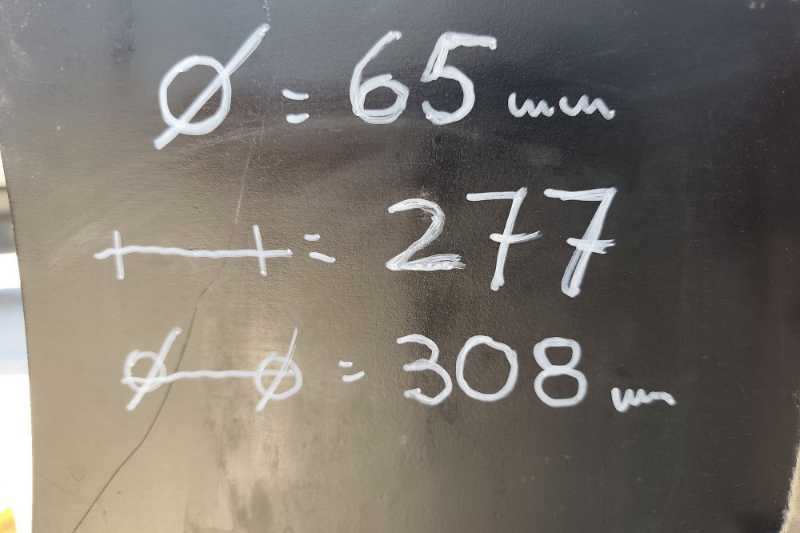 Ø = 65 mm
|—| = 277
Ø—Ø = 308 mm